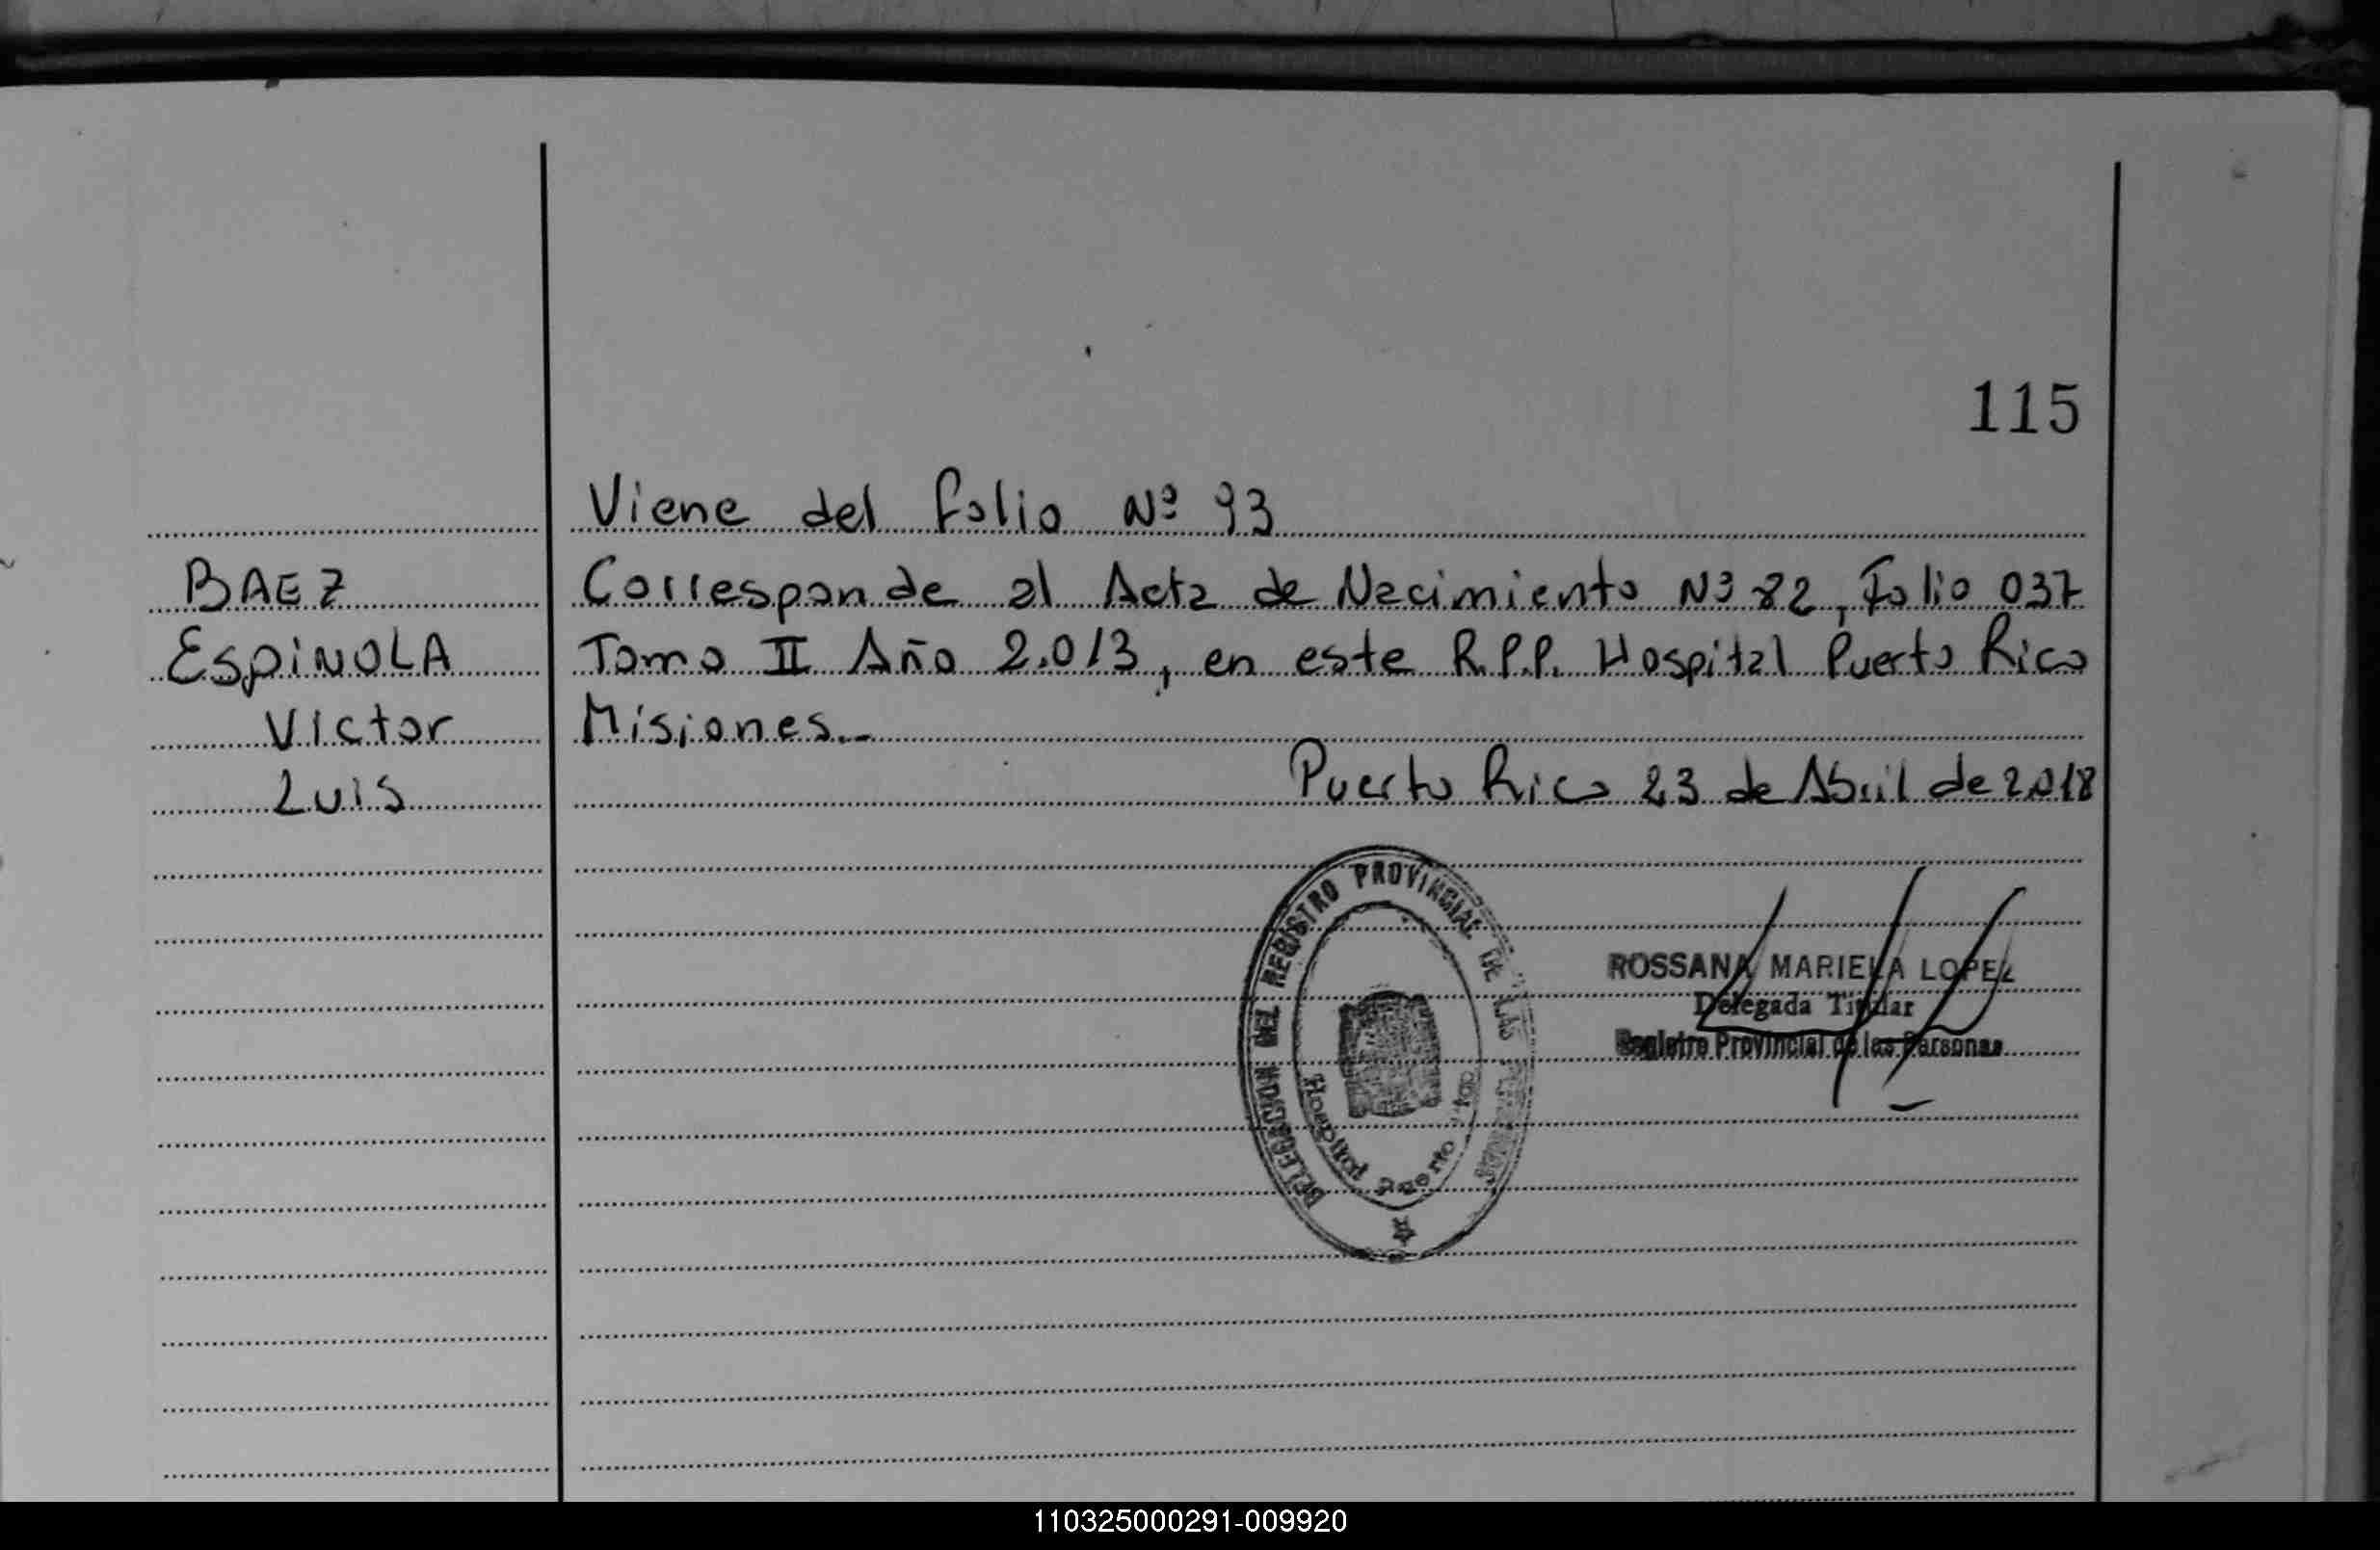 115
Viene del folio Nº 93
BAEZ
ESPiNOLA
Victor
Luis
Corresponde al Acta de Nacimiento Nº 82, Folio 037
Tomo II Año 2.013, en este R.P.P. Hospital Puerto Rico
Misiones.-
Puerto Rico 23 de Abril de 2.018
DELEGACION DEL REGISTRO PROVINCIAL DE LAS
Hospital Puerto
ROSSANA MARIELA LOPEZ
Delegada Titular
Registro Provincial de las Personas
110325000291-009920